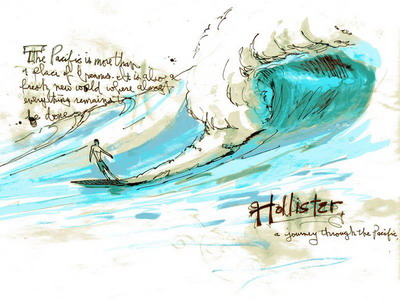 The Pacific is more than
a place of
fresh, new world where almost
everything remains to
be done
Hollister
a journey through the Pacific,